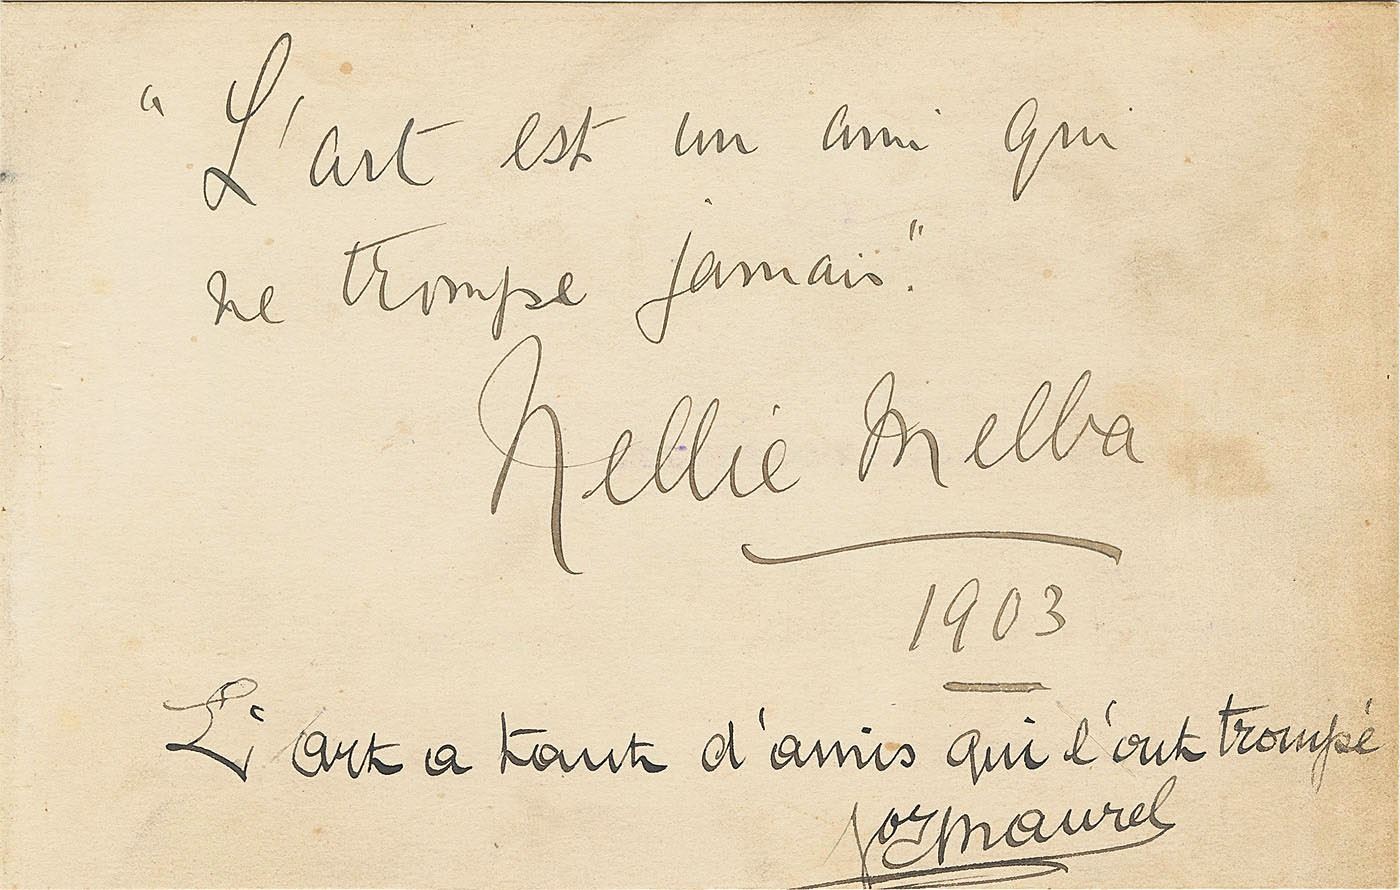 "L'art est un ami qui
ne trompe jamais."
Nellie Melba
1903
L'art a tant d'amis qui l'ont trompé
Maurel